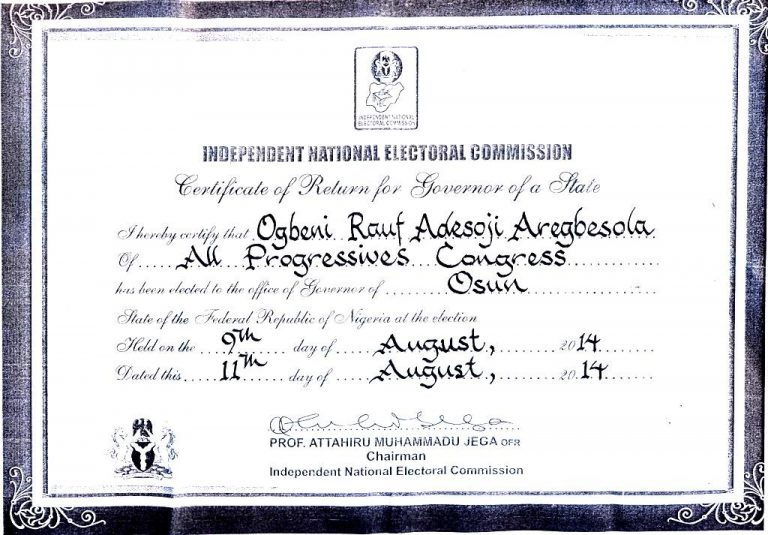 INDEPENDENT NATIONAL
ELECTORAL COMMISSION
INDEPENDENT NATIONAL ELECTORAL COMMISSION
Certificate of Return for Governor of a State
I hereby certify that Ogbeni Rauf Adesoji Aregbesola
Of All Progressives Congress
has been elected to the office of Governor of Osun
State of the Federal Republic of Nigeria at the election
Held on the 9th day of August, 2014
Dated this 11th day of August, 2014
PROF. ATTAHIRU MUHAMMADU JEGA OFR
Chairman
Independent National Electoral Commission